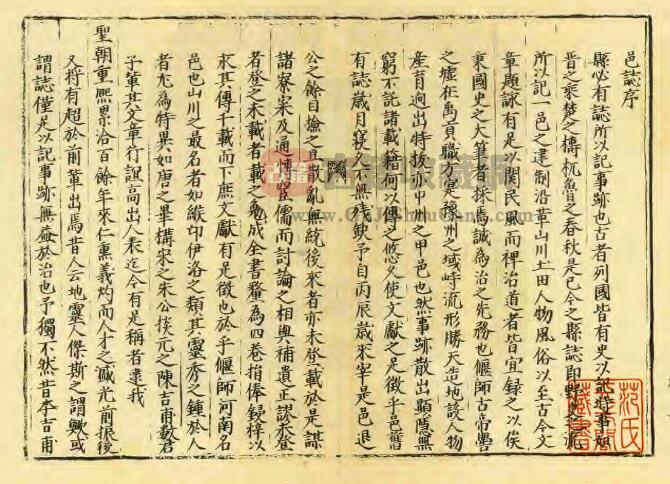 邑誌序
縣必有誌所以記事跡也古者列國皆有史以記時事故
晉之乘楚之檮杌魯之春秋是已今之縣誌即
所以記一邑之建制沿革山川土田人物風俗以至古今文
章題詠有足以関民風而裨治道者皆宜録之以俟
秉國史之大筆者採焉誠為治之先務也偃師古帝嚳
之墟在禹貢職方寔豫州之域峙流形勝天造地設人物
産育逈出特拔亦中州之甲邑也然事跡散出顯隱無
窮不託諸載籍何以傳之悠久使文獻之是徵乎邑舊
有誌歲月寖久不無残缺予自丙辰歲來宰是邑退
公之餘目撿之且散亂無統後來者亦未登載於是謀
諸寮寀及通博宿儒而討論之相與補遺正謬未登
者登之未載者載之兔成全書釐為四卷捐俸鋟梓以
永其傳千載而下庶文獻有足徵也於乎偃師河南名
邑也山川之最名者如緱邙伊洛之類其靈秀之鍾於人
者尤為特異如唐之畢構宋之朱公掞元之陳吉甫數君
子軰其文章行誼高出人表迄今有足稱者逮我
聖朝重熙累洽百餘年來仁熏義灼而人才之盛光前振後
又將有超於前軰出焉昔人云地靈人傑斯之謂歟或
謂誌僅足以記事跡無益於治也予獨不然昔李吉甫